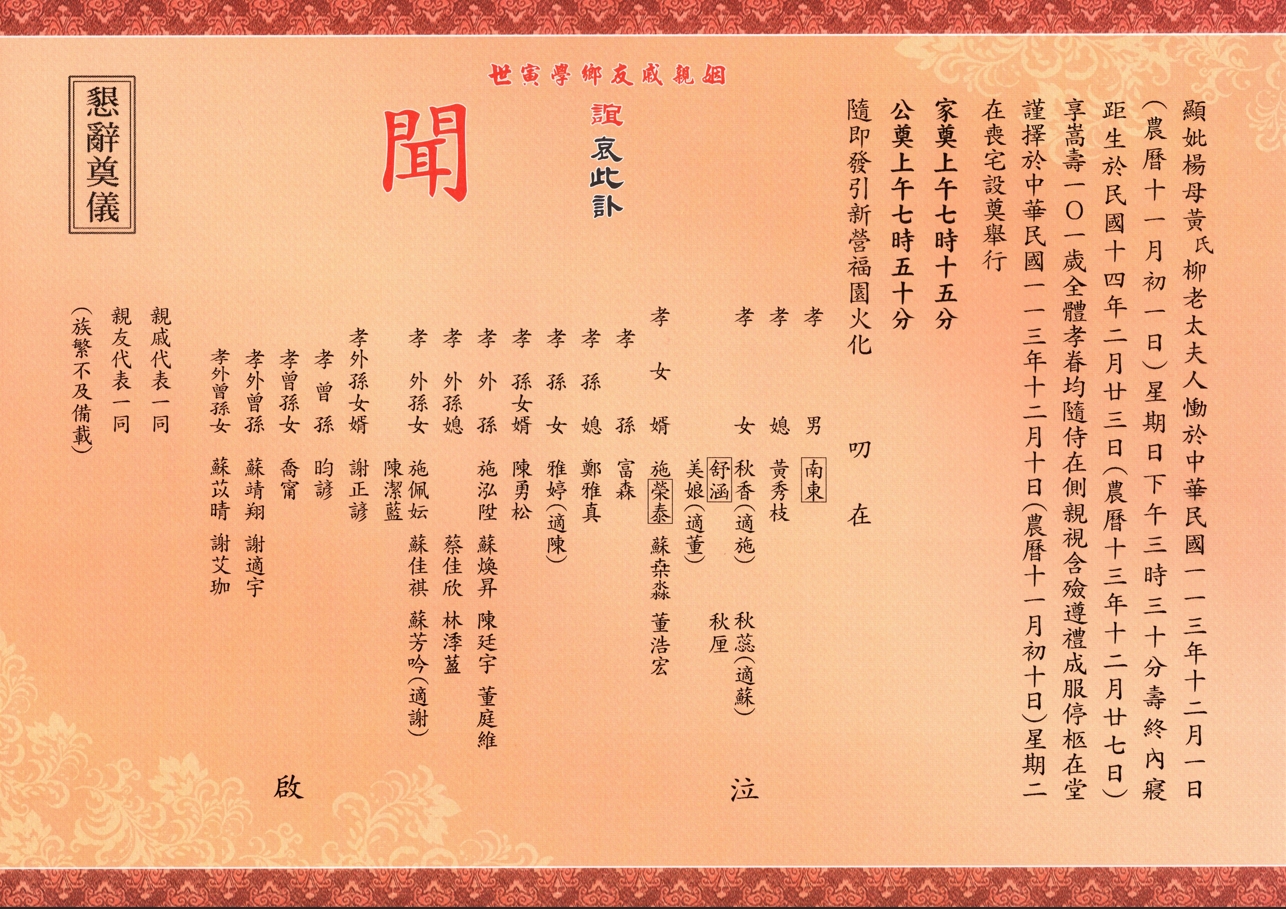 顯妣楊母黃氏柳老太夫人慟於中華民國一一三年十二月一日
(農曆十一月初一日)星期日下午三時三十分壽終內寢
距生於民國十四年二月廿三日(農曆十三年十二月廿七日)
享嵩壽一〇一歲全體孝眷均隨侍在側親視含殮遵禮成服停柩在堂
謹擇於中華民國一一三年十二月十日(農曆十一月初十日)星期二
在喪宅設奠舉行
家奠上午七時十五分
公奠上午七時五十分
隨即發引新營福園火化
叨在
姻親戚友鄉學寅世
誼哀此訃
聞
孝男 南東
孝媳 黃秀枝
孝女 秋香(適施) 秋蕊(適蘇)
舒涵 秋厘
美娘(適董)
孝女婿 施榮泰 蘇桒淼 董浩宏
孝孫 富森
孝孫媳 鄭雅真
孝孫女 雅婷(適陳)
孝孫女婿 陳勇松
孝外孫 施泓陞 蘇煥昇 陳廷宇 董庭維
孝外孫媳 蔡佳欣 林渟葢
孝外孫女 施佩妘 蘇佳祺 蘇芳吟(適謝)
陳潔藍
孝外孫女婿 謝正諺
孝曾孫 昀諺
孝曾孫女 喬甯
孝外曾孫 蘇靖翔 謝適宇
孝外曾孫女 蘇苡晴 謝艾珈
泣
啟
親戚代表一同
親友代表一同
(族繁不及備載)
懇辭奠儀